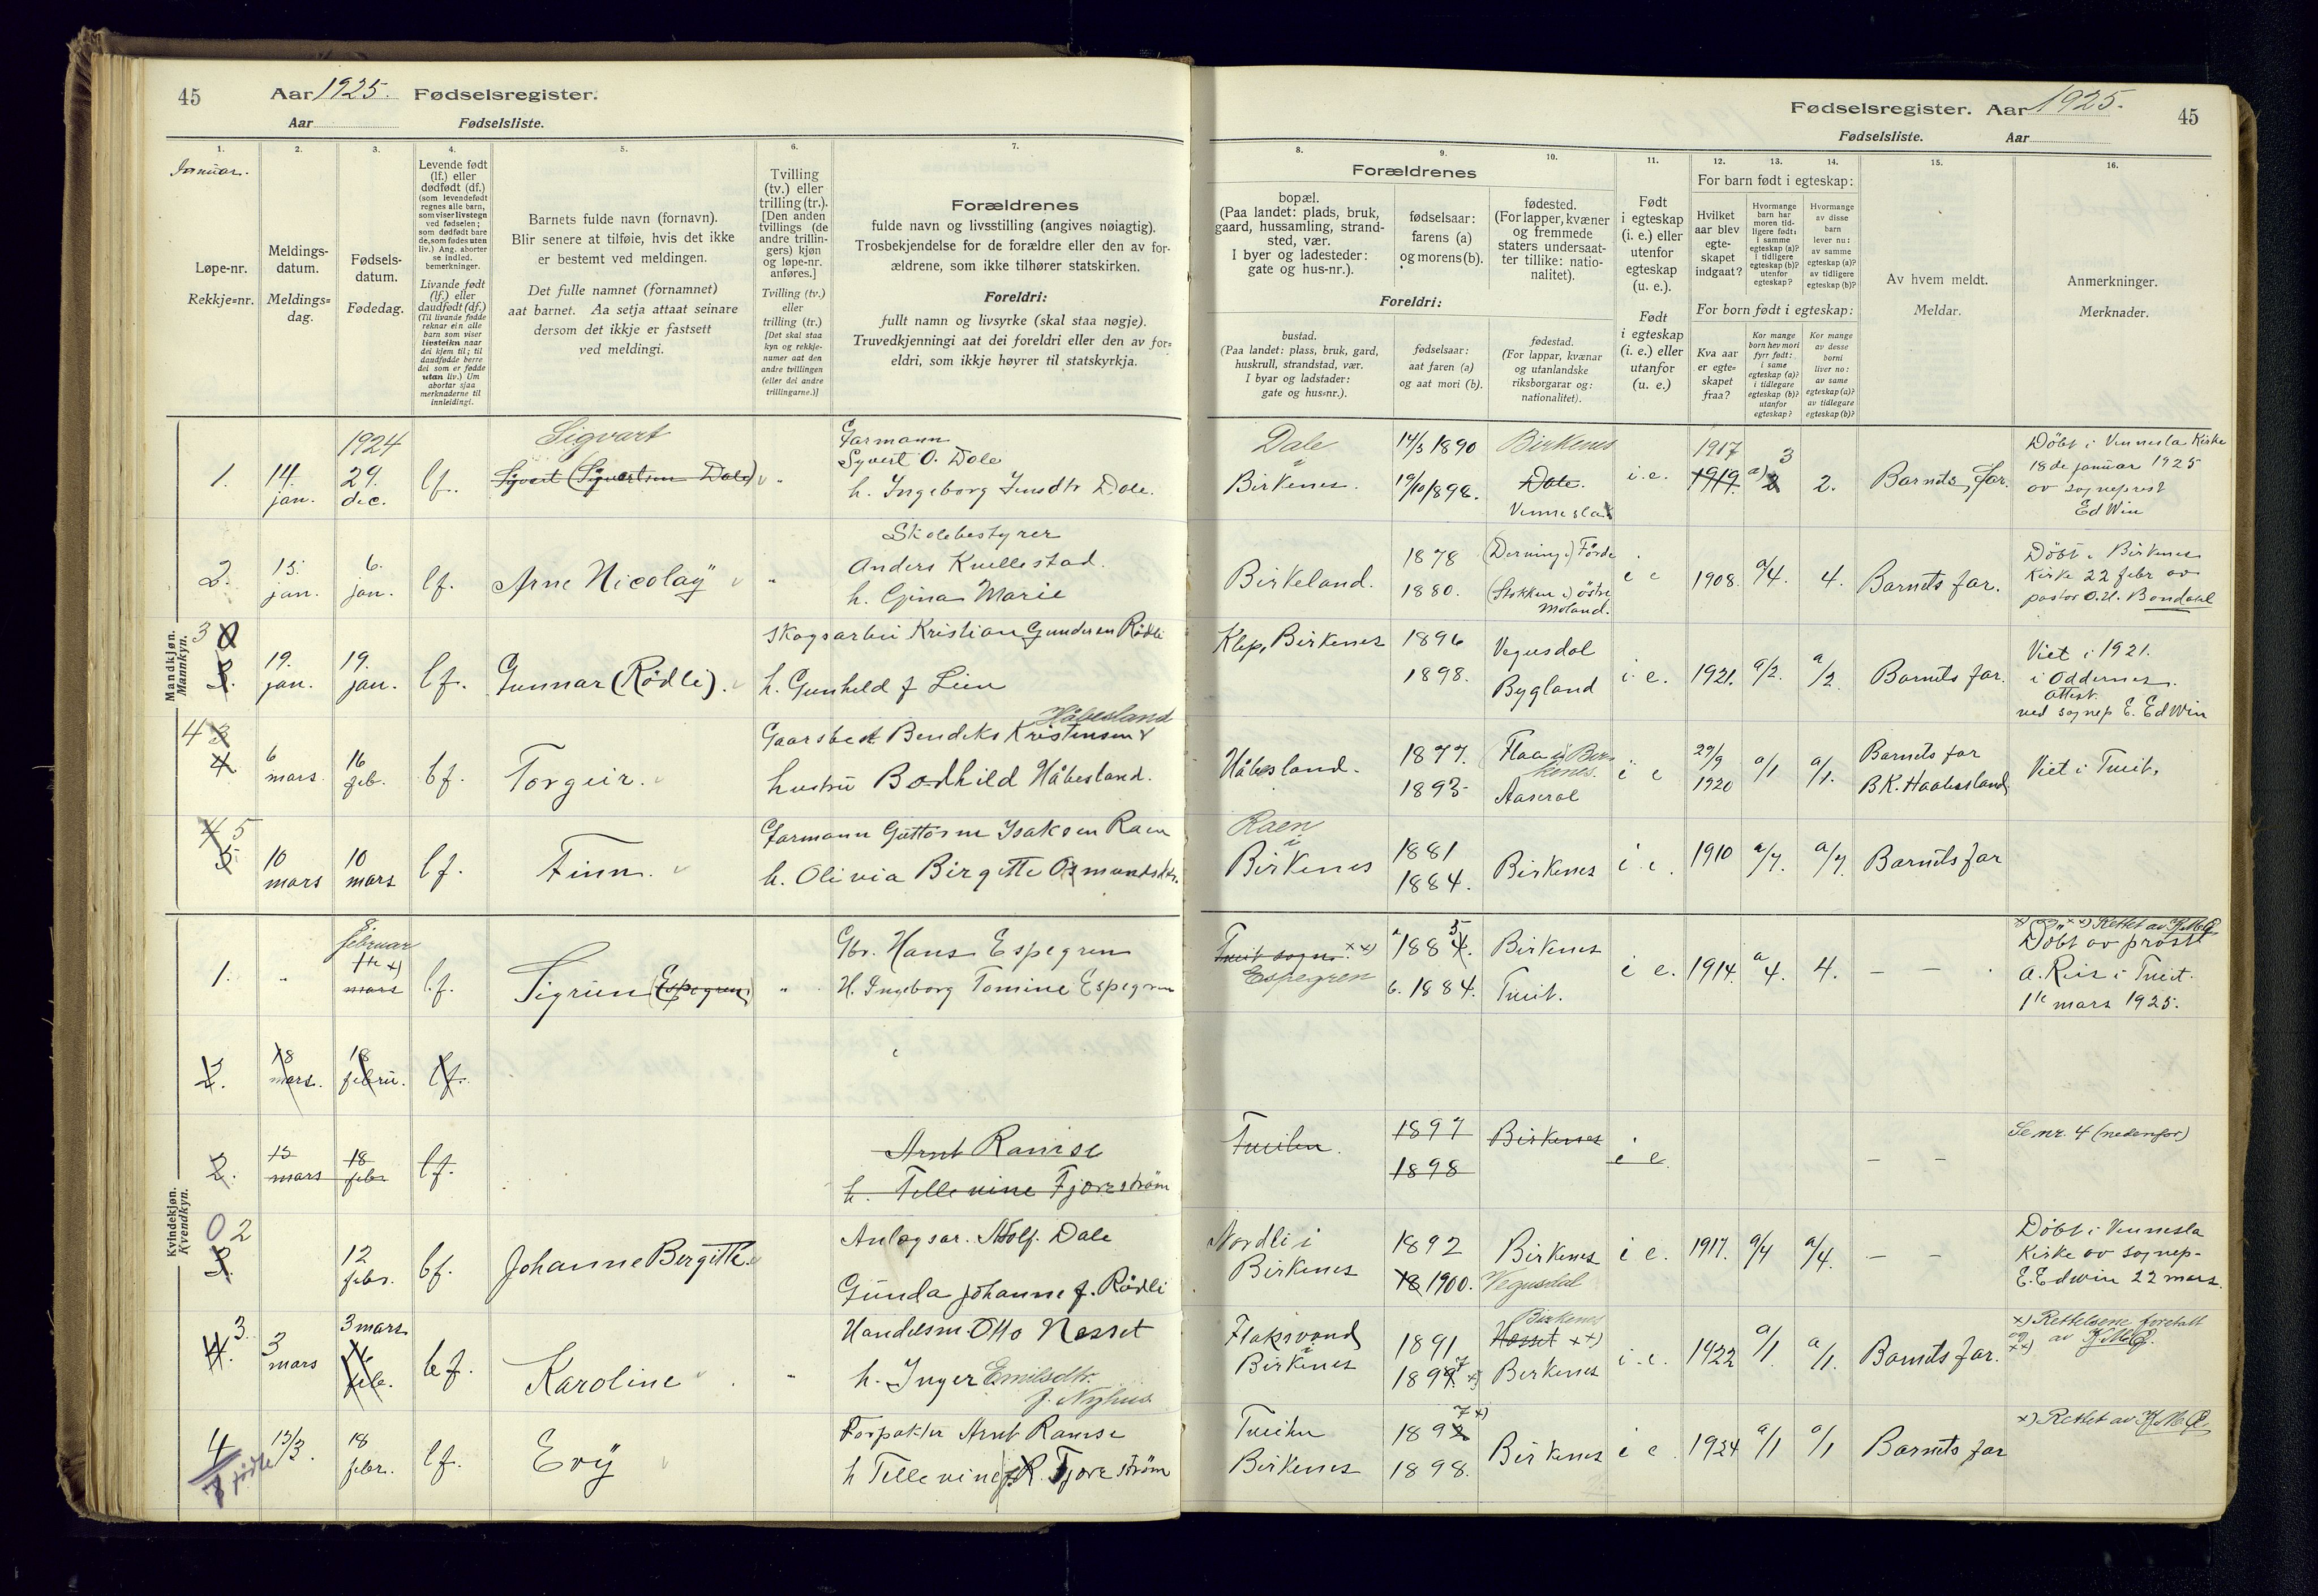 45 Aar 1925. Fødselsregister.
Aar Fødselsliste.
1. 2. 3. 4. 5. 6. 7.
Januar.
Løpe-nr.
Rekkje=nr.
Meldings-
datum.
Meldings=
dag.
Fødsels-
datum.
Fødedag.
Levende født
(lf.) eller
dødfødt (df.)
(som levendefødt
regnes alle barn,
som viser livstegn
ved fødselen;
som dødfødt bare
de, som fødes uten
liv.) Ang. aborter
se indled.
bemerkninger.
Livande født
(lf.) eller
daudfødt (df.)
(Til livande fødde
reknar ein alle
barn som viser
livsteikn naar
dei kjem til; til
daudfødde berre
dei som er fødde
utan liv.) Um
abortar sjaa
merknaderne til
innleidingi.
Barnets fulde navn (fornavn).
Blir senere at tilføie, hvis det ikke
er bestemt ved meldingen.
Det fulle namnet (fornamnet)
aat barnet. Aa setja attaat seinare
dersom det ikkje er fastsett
ved meldingi.
Tvilling
(tv.) eller
trilling (tr.).
[Den anden
tvillings (de
andre trillin-
gers) kjøn
og løpe-nr.
anføres.]
Tvilling (tv.)
eller
trilling (tr.)
[Det skal staa
kyn og rekkje-
numer aat den
andre tvillingen
(eller dei andre
trillingarne.)]
Forældrenes
fulde navn og livsstilling (angives nøiagtig).
Trosbekjendelse for de forældre eller den av for-
ældrene, som ikke tilhører statskirken.
Foreldri:
fullt namn og livsyrke (skal staa nøgje).
Truvedkjenningi aat dei foreldri eller den av for=
eldri, som ikkje høyrer til statskyrkja.
Mandkjøn.
Mannkyn.
1924
1. 14. jan. 29. dec. lf. Sigvart
Syvert (Sigvartsen Dale) "
Farmann
Syvert O. Dale
h. Ingeborg Jensdtr Dale.
2. 15. jan. 6. jan. lf. Arne Nicolaÿ "
Skolebestyrer
Anders Kvellestad.
h. Gina Marie
3 3. 19. jan. 19. jan. lf. Gunnar (Rödli).
Skogsarbei Kristian Gundersen Rödli
h. Gunheld f Lien
4 3 4 6 mars. 16 feb. lf. Torgeir.
Håbesland
Gaardbr Bendiks Kristensen
hustrü Bodhild Håbesland.
4 5 5 10 mars 10 mars lf. Finn.
Farmann Guttorm Isaksen Raen
h. Olivia Birgitte Osmundsdtr.
Kvindekjøn.
Kvendkyn.
1. " 8 februar
1te x)
mars lf. Sigrün (Espegren) "
Gbr. Hans Espegren
H. Ingeborg Tomine Espegren
2. 18 mars. 18 febru. lf.
2. 13 mars 18 febr lf.
Arnt Ramse
h. Tellevine Fjorestrøm
0 2 3. 12 febr. lf. Johanne Bergitte.
Anlegsar. Adolf Dale
Günda Johanne f. Rödli
4. 3. 3 mars 3 mars
feb. lf. Karoline "
Handelsm. Otto Nesset
h. Inger Emilsdtr.
f. Nyhus
4 13/3. 18 febr. lf. Evÿ
Forpakter Arnt Ramse
h Tellevine f. R. Fjorestrøm
7 födte
Fødselsregister. Aar 1925. 45
Fødselsliste. Aar
8. 9. 10. 11. 12. 13. 14. 15. 16.
Forældrenes
bopæl.
(Paa landet: plads, bruk,
gaard, hussamling, strand-
sted, vær.
I byer og ladesteder:
gate og hus-nr.).
fødselsaar:
farens (a)
og morens (b).
fødested.
(For lapper, kvæner
og fremmede
staters undersaat-
ter tillike: natio-
nalitet).
Foreldri:
bustad.
(Paa landet: plass, bruk, gard,
huskrull, strandstad, vær.
I byar og ladstader:
gate og hus=nr.).
fødselsaar:
aat faren (a)
og aat mori (b).
fødestad.
(For lappar, kvænar
og utanlandske
riksborgarar og:
nationalitet).
Født
i egteskap
(i. e.) eller
utenfor
egteskap
(u. e.).
Født
i egteskap
(i. e.) eller
utanfor
(u. e.)
For barn født i egteskap:
Hvilket
aar blev
egte-
skapet
indgaat?
Hvormange
barn har
moren tid-
ligere født:
i samme
egteskap (a)?
i tidligere
egteskap (b)?
utenfor
egteskap?
Hvormange
av disse
barn
lever nu:
av samme
egteskap (a)?
av tidligere
egteskap (b)?
For born født i egteskap:
Kva aar
er egte-
skapet
fraa?
Kor mange
born hev mori
fyrr født:
i same
egteskap (a)?
i tidlegare
egteskap (b)?
utanfor
egteskap?
Kor mange
av desse
borni
liver no:
av same
egteskap (a)?
av tidlegare
egteskap (b)?
Av hvem meldt.
Meldar.
Anmerkninger.
Merknader.
Dale
i
Birkenes. 14/3 1890
19/10 1898. Birkenes
Dale.
Vennesla i. e. 1917
1919. a) 2 3 2. Barnets Far.
Döbt i Vennesla Kirke
18de januar 1925
av sogneprest
Ed Win
Birkeland. 1878
1880. (Derning i) Förde
(Stokken i) östre
Moland. i e 1908. a/4. 4. Barnets far.
Döbt i Birkenes
Kirke 22 febr av
pastor O. U. Bondahl
Klep, Birkenes 1896
1898. Vegusdal
Bygland i. e. 1921. a/2. a/2. Barnets far.
Viet i 1921.
i Oddernes.
attest.
ved sognep E. Ed Win
Håbesland. 1877.
1893. Flaa i Bir-
kenes.
Aaseral i e 29/9
1920 a/1 a/1. Barnets far
B K. Haabesland
Viet i Tveit.
Raen
i
Birkenes 1881
1884. Birkenes i e. 1910 a/7. a/7. Barnets far
Tveit sogn. xx)
Espegren a 1884. 5
b. 1884. Birkenes
Tveit. i e. 1914. a 4. 4. – –
x) og xx) Rettet av
Döbt av prost
A. Riis i Tveit.
1te mars 1925.
Tveiten. 1897
1898 Birkenes i e. – –
Se nr. 4 (nedenfor)
Nordli i
Birkenes 1892
18 1900. Birkenes
Vegusdal i e. 1917. a/4 a/4. – –
Döbt i Vennesla
Kirke av sognep-
E. Edwin 22 mars.
Flaksvand
i
Birkenes 1891
1897 x) Birkenes
Hesset xx)
Birkenes i. e. 1922 a/1. a/1. Barnets far.
x) Rettelsene foretatt
og
xx) av
Tveiten
Birkenes 1892 7 x)
1898. Birkenes i e 1924 a/1 a/1 Barnets far
x) Rettet av